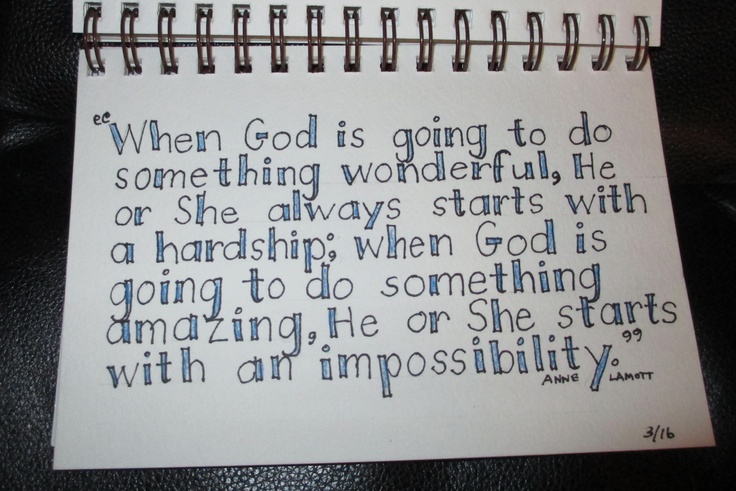 “When God is going to do
something wonderful, He
or She always starts with
a hardship; when God is
going to do something
amazing, He or She starts
with an impossibility.”
ANNE LAMOTT
3/16